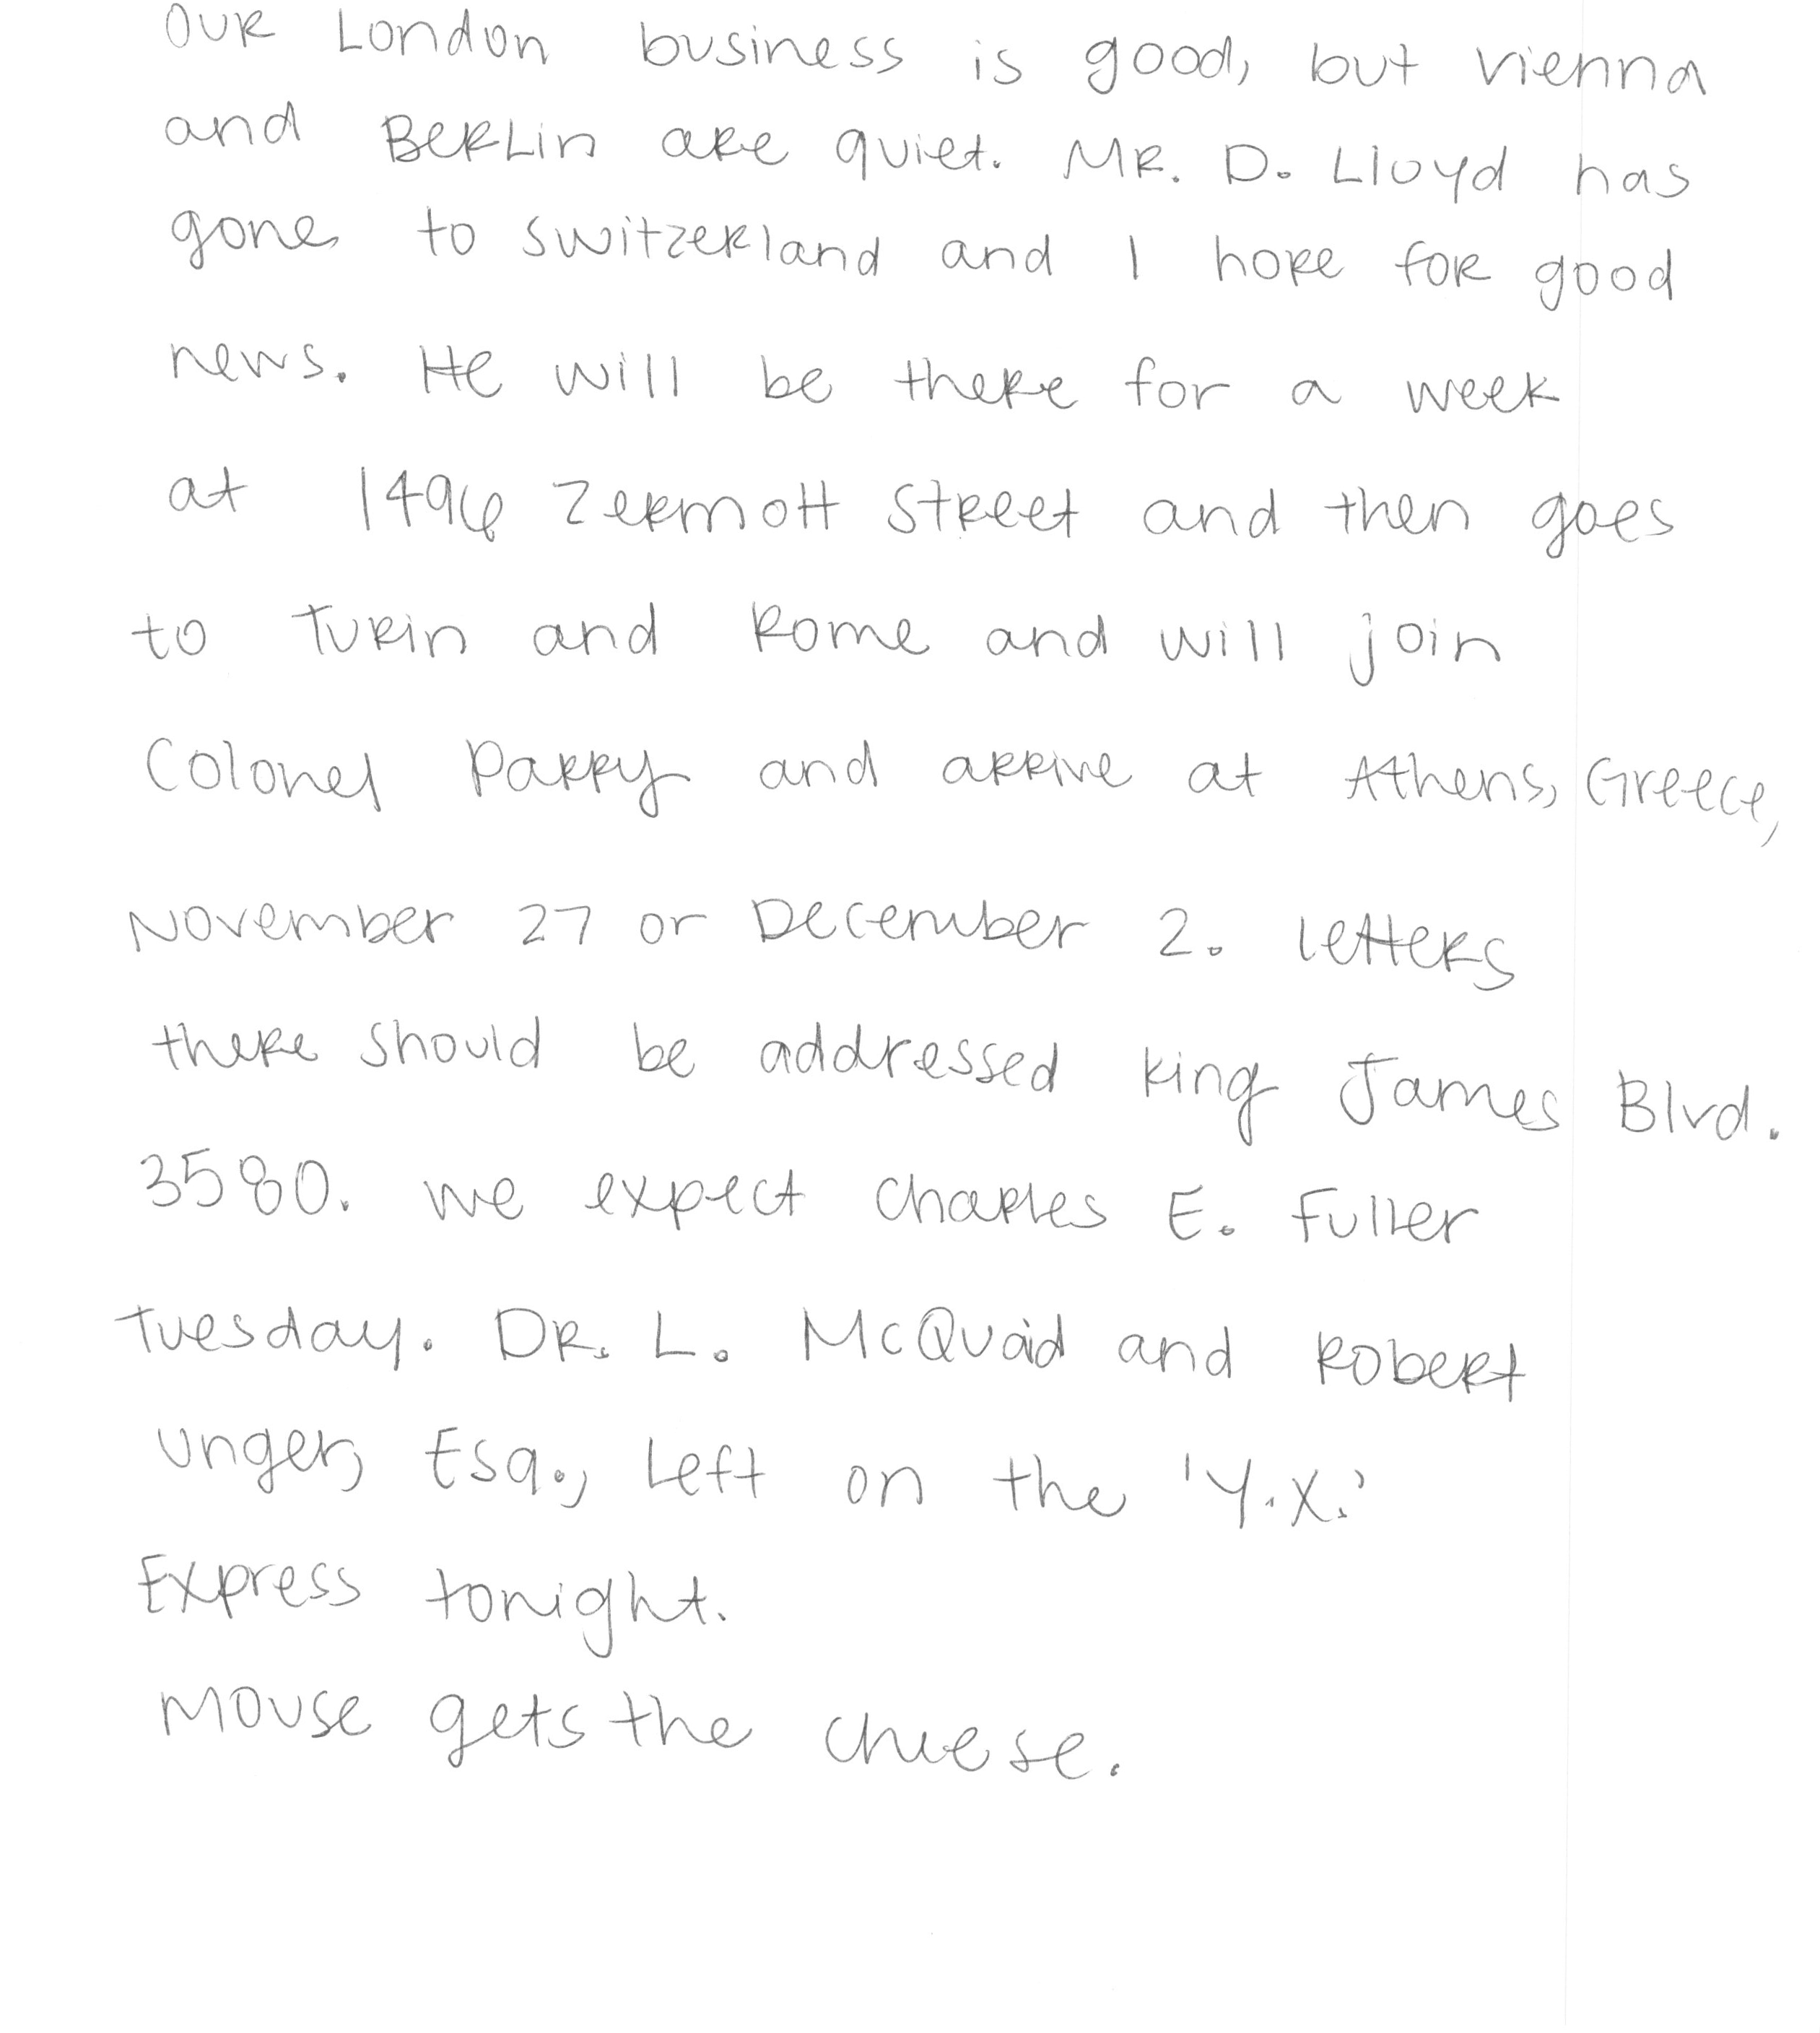 Our London business is good, but Vienna
and Berlin are quiet. Mr. D. Lloyd has
gone to Switzerland and I hope for good
news. He will be there for a week
at 1496 Zermott Street and then goes
to Turin and Rome and will join
Colonel Parry and arrive at Athens, Greece,
November 27 or December 2. Letters
there should be addressed King James Blvd.
3580. We expect Charles E. Fuller
Tuesday. Dr. L. McQuaid and Robert
Unger, Esq., left on the 'Y.X.'
Express tonight.
Mouse gets the cheese.